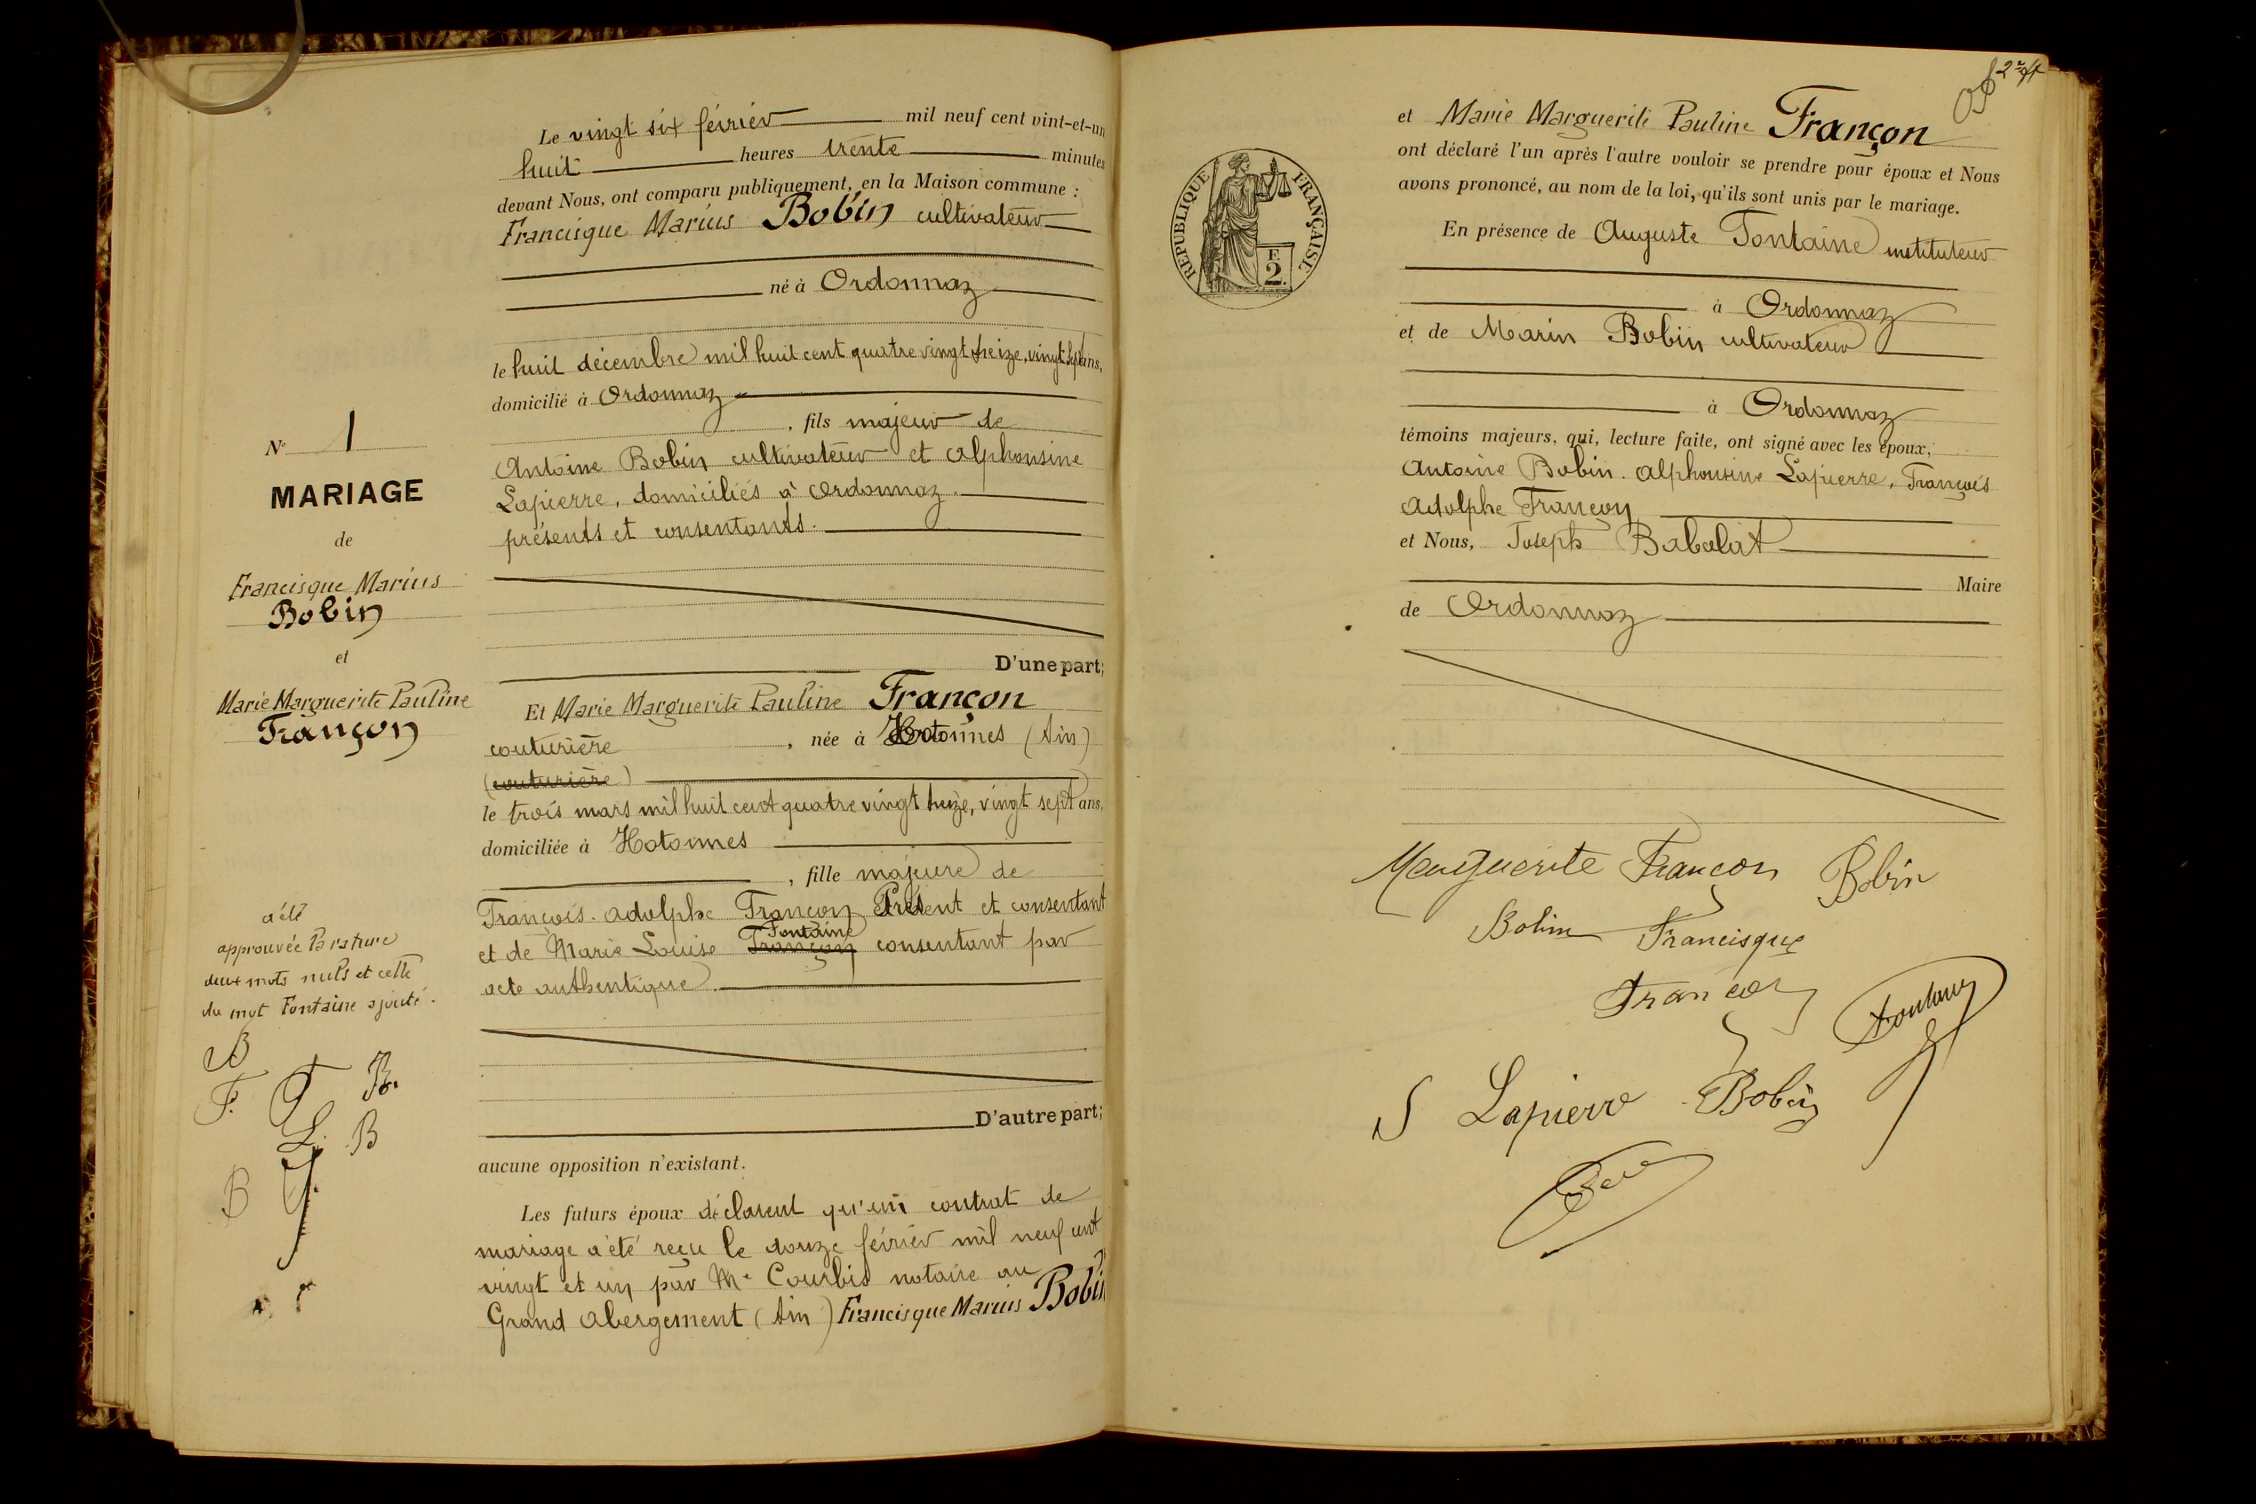 Le vingt six février mil neuf cent vint-et-un
huit heures trente minutes
devant Nous, ont comparu publiquement, en la Maison commune :
Francisque Marius Bobin cultivateur
né à Ordonnaz
le huit décembre mil huit cent quatre vingt treize, vingt sept ans,
domicilié à Ordonnaz
, fils majeur de
Antoine Bobin cultivateur et Alphonsine
Lapierre, domiciliés à Ordonnaz.
présents et consentants.
D'une part;
Et Marie Marguerite Pauline Françon
couturière , née à Hotonnes (Ain)
(couturière)
le trois mars mil huit cent quatre vingt treize, vingt sept ans,
domiciliée à Hotonnes
, fille majeure de
François-Adolphe Françon Présent et consentant
Fontaine
et de Marie Louise Françon consentant par
acte authentique.
D'autre part;
aucune opposition n'existant.
Les futurs époux déclarent qu'un contrat de
mariage a été reçu le douze février mil neuf cent
vingt et un par Me Courbis notaire au
Grand Abergement (Ain) Francisque Marius Bobin
No 1
MARIAGE
de
Francisque Marius
Bobin
et
Marie Marguerite Pauline
Françon
a été
approuvée la rature
deux mots nuls et celle
du mot Fontaine ajouté.
B
F. B.
L. B
B
2
et Marie Marguerite Pauline Françon
ont déclaré l'un après l'autre vouloir se prendre pour époux et Nous
avons prononcé, au nom de la loi, qu'ils sont unis par le mariage.
RÉPUBLIQUE FRANÇAISE
F
2
En présence de Auguste Fontaine instituteur
à Ordonnaz
et de Marin Bobin cultivateur
à Ordonnaz
témoins majeurs, qui, lecture faite, ont signé avec les époux,
Antoine Bobin. Alphonsine Lapierre, François
Adolphe Françon
et Nous, Joseph Babolat
Maire
de Ordonnaz
Marguerite Françon Bobin
Bobin Francisque
Françon Fontaine
S Lapierre Bobin